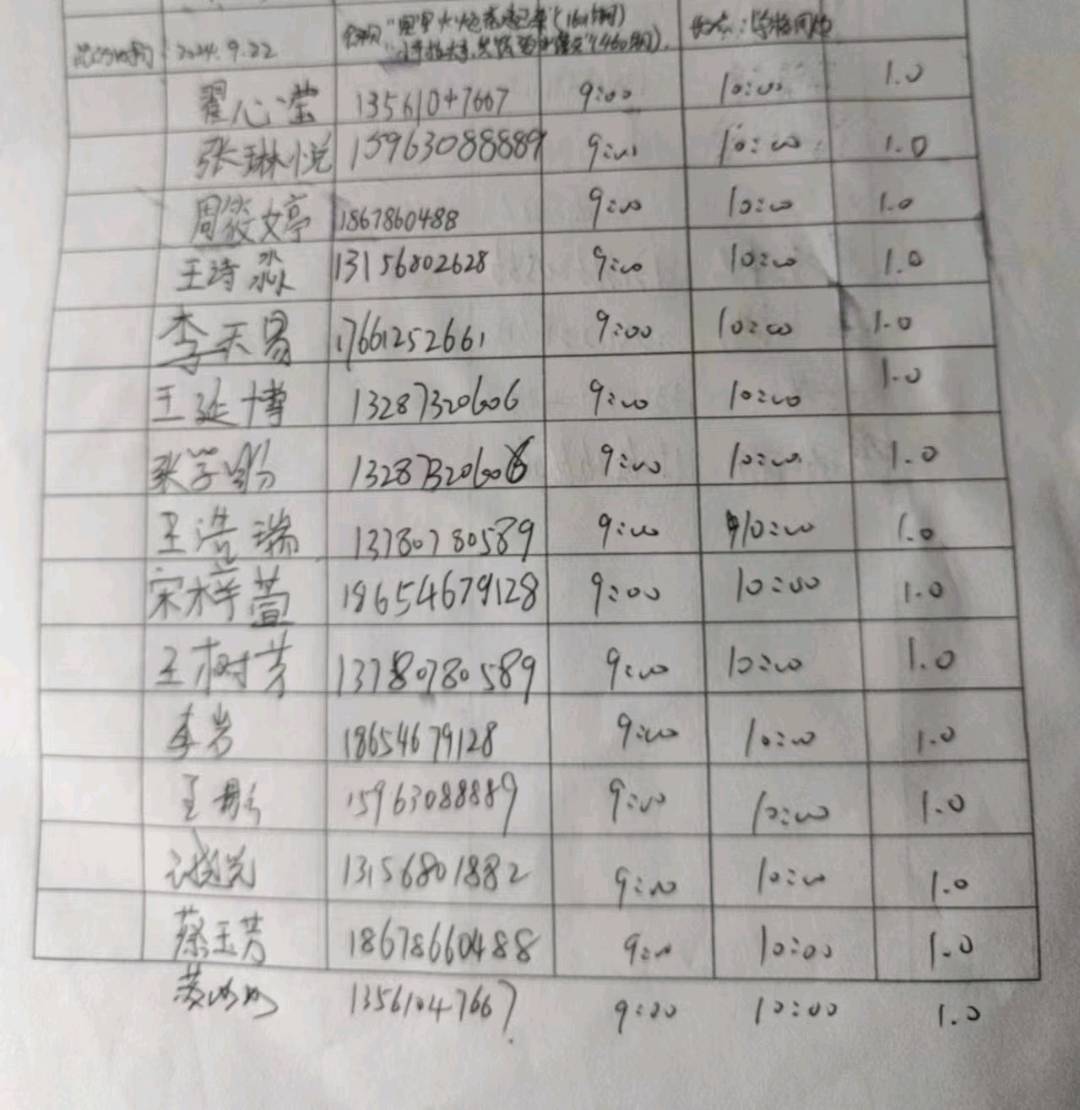 2024.9.22
翟心滢 13561047667 9:00 10:00 1.0
张琳悦 15963088889 9:00 10:00 1.0
周筱婷 1867860488 9:00 10:00 1.0
王诗淼 13156802628 9:00 10:00 1.0
李天易 17661252661 9:00 10:00 1.0
王延博 13287320606 9:00 10:00 1.0
张学 13287320606 9:00 10:00 1.0
王浩瑞 13780780589 9:00 10:00 1.0
宋梓萱 18654679128 9:00 10:00 1.0
王树芳 13780780589 9:00 10:00 1.0
李岩 18654679128 9:00 10:00 1.0
王彬 15963088889 9:00 10:00 1.0
13156801882 9:00 10:00 1.0
蔡玉芳 18678660488 9:00 10:00 1.0
13561047667 9:00 10:00 1.0